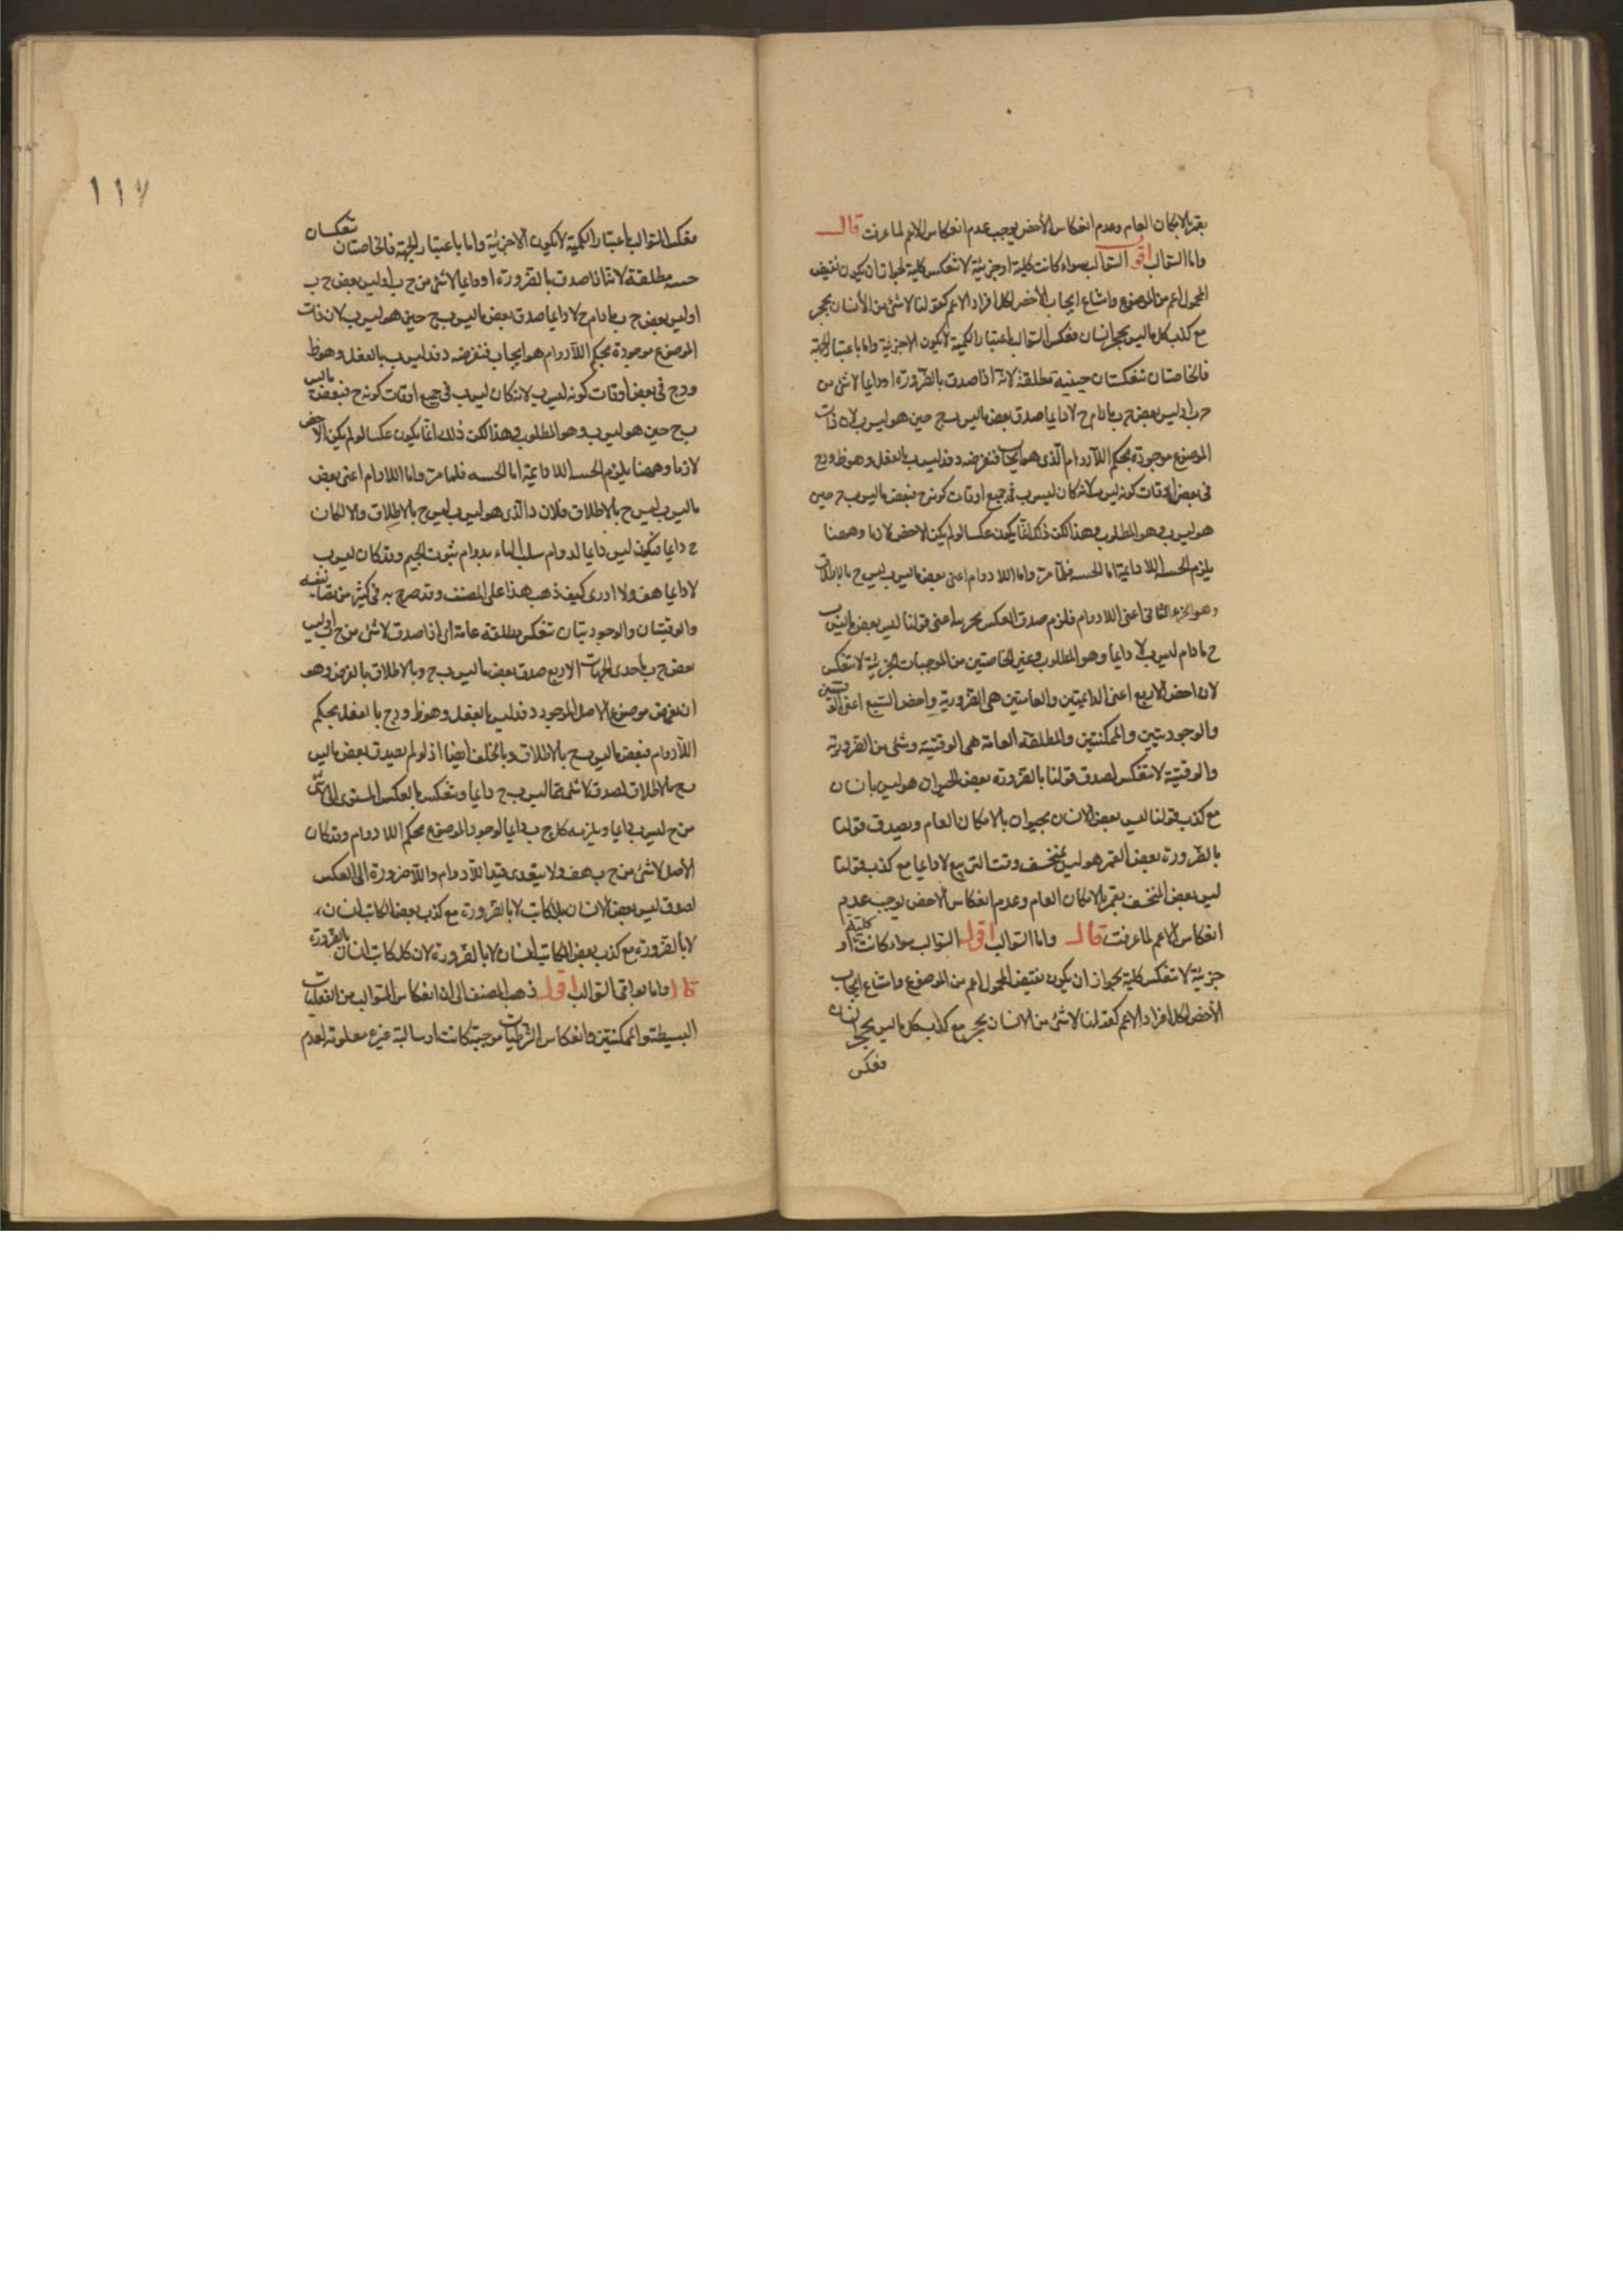 بقمر بالامكان العام وعدم انعكاس الأخص يوجب عدم انعكاس الاعم لما عرفت قال
واما السوالب اقول السوالب سواء كانت كلية او جزئية لا تنعكس كلية لجواز ان يكون نقيض
المحمول اعم من الموضوع وامتناع ايجاب الأخص لكل افراد الاعم كقولنا لا شئ من الأنسان بحجر
مع كذب كل ما ليس بحجر انسان فعكس السوالب باعتبار الكمية لا يكون الا جزئية واما باعتبار الجهة
فالخاصتان تنعكسان حينية مطلقة لانه اذا صدق بالضرورة او دايما لا شئ من
ج ب او ليس بعض ج ب مادام ج لا دايما صدق بعض ما ليس ب ج حين هو ليس ب لان ذات
الموضوع موجودة بحكم اللادوام الذى هو ايجاب فنفرضه د فد ليس ب بالفعل وهو ظ و د ج
فى بعض اوقات كونه ليس ب لانه كان ليس ب فى جميع اوقات كونه ج فبعض ما ليس ب ج حين
هو ليس ب وهو المطلوب وهذا لكن ذلك انما يكون عكسا لو لم يكن الاخص لازما وههنا
يلزم الحسه اللادايمة اما الحسه فلما مر واما اللادوام اعنى بعض ما ليس ب ليس ج بالاطلاق
وهو الجزء الثانى اعنى اللادوام فلزم صدق العكس بجزءيه اعنى قولنا ليس بعض ما ليس ب
ج مادام ليس ب لا دايما وهو المطلوب وغير الخاصتين من الموجبات الجزئية لا تنعكس
لان اخص الاربع اعنى الدايمتين والعامتين هى الضرورية واخص السبع اعنى الوقتيتين
والوجوديتين والممكنتين والمطلقة العامة هى الوقتية وشئ من الضرورية
والوقتية لا تنعكس لصدق قولنا بالضرورة بعض الحيوان هو ليس بانسان
مع كذب قولنا ليس بعض الانسان بحيوان بالامكان العام ويصدق قولنا
بالضرورة بعض القمر هو ليس بمنخسف وقت التربيع لا دايما مع كذب قولنا
ليس بعض المنخسف بقمر بالامكان العام وعدم انعكاس الاخص يوجب عدم
انعكاس الاعم لما عرفت قال واما السوالب اقول السوالب سواء كانت كلية او
جزئية لا تنعكس كلية بجواز ان يكون نقيض المحمول اعم من الموضوع وامتناع ايجاب
الأخص لكل افراد الاعم كقولنا لا شئ من الانسان بحجر مع كذب كل ما ليس بحجر انسان
فعكس
١١٧
فعكس السوالب باعتبار الكمية لا يكون الا جزئية واما باعتبار الجهة فالخاصتان تنعكسان
حسه مطلقة لانا اذا صدق بالضرورة او دايما لا شئ من ج ب او ليس بعض ج ب
او ليس بعض ج ب مادام ج لا دايما صدق بعض ما ليس ب ج حين هو ليس ب لان ذات
الموضوع موجودة بحكم اللادوام هو ايجاب فنفرضه د فد ليس ب بالفعل وهو ظ
و د ج فى بعض اوقات كونه ليس ب لانه كان ليس ب فى جميع اوقات كونه ج فبعض ما ليس
ب ج حين هو ليس ب وهو المطلوب وهذا لكن ذلك انما يكون عكسا لو لم يكن الاخص
لازما وههنا يلزم الحسه اللادايمة اما الحسه فلما مر واما اللادوام اعنى بعض
ما ليس ب ليس ج بالاطلاق فلان د الذى هو ليس ب ليس ج بالاطلاق والا لكان
ج دايما فيكون ليس ب دايما لدوام سلب الباء بدوام ثبوت الجيم وقد كان ليس ب
لا دايما هف ولا ادرى كيف ذهب هذا على المصنف وقد صرح به فى كثير من تصانيفه
والوقتيتان والوجوديتان تنعكس مطلقة عامة اى اذا صدق لا شئ من ج ب او ليس
بعض ج ب باحدى الجهات الاربع صدق بعض ما ليس ب ج وبالاطلاق بالفرض وهو
ان نفرض موضوع الاصل الموجود د فد ليس ب بالفعل وهو ظ و د ج بالفعل بحكم
اللادوام فبعض ما ليس ب ج بالاطلاق وبالخلف ايضا اذ لو لم يصدق بعض ما ليس
ب ج بالاطلاق لصدق لا شئ مما ليس ب ج دايما وتنعكس بالعكس المستوى الى لا شئ
من ج ليس ب دايما ويلزمه كل ج ب دايما لوجود الموضوع بحكم اللادوام وقد كان
الأصل لا شئ من ج ب هف ولا يتعدى قيد اللادوام واللاضرورة الى العكس
لصدق ليس بعض الانسان بالكاتب لا بالضرورة مع كذب بعض الكاتب انسان
لا بالضرورة مع كذب بعض الكاتب انسان لا بالضرورة لان كل كاتب انسان بالضرورة
قال واما بواقى السوالب اقول ذهب المصنف الى ان انعكاس السوالب من الفعليات
البسيطة والممكنتين وانعكاس الشرطيات موجبة كانت او سالبة غير معلومة لعدم